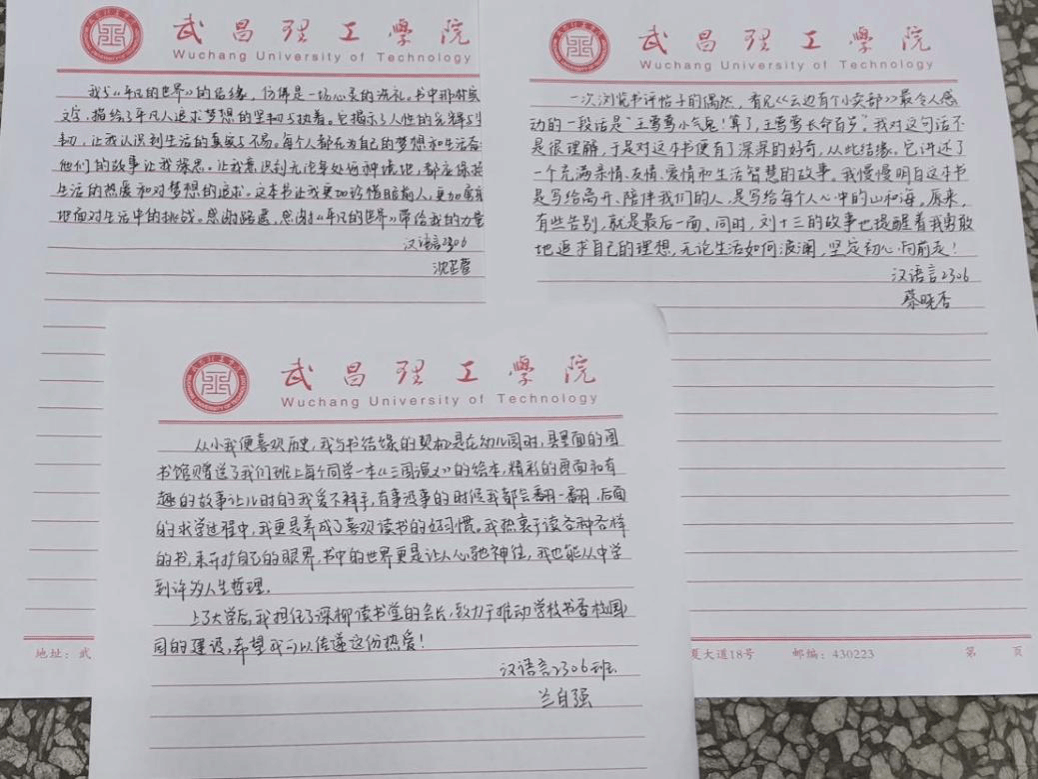 武昌理工學院
Wuchang University of Technology
我与《平凡的世界》的结缘，仿佛是一场心灵的洗礼。书中那朴实
文字，描绘了平凡人追求梦想的坚韧与执着。它揭示了人性的光辉与
韧，让我认识到生活的真实与不易。每个人都在为自己的梦想和生活奋
他们的故事让我深思。让我意识到无论身处何种境地，都应保持
生活的热爱和对梦想的追求。这本书让我更加珍惜眼前人，更加勇敢
地面对生活中的挑战。感谢路遥，感谢《平凡的世界》带给我的力量
汉语言2306
沈芸
武昌理工學院
Wuchang University of Technology
一次浏览书评帖子的偶然，看见《云边有个小卖部》最令人感
动的一段话是“王莺莺小气鬼！算了，王莺莺长命百岁”。我对这句话不
是很理解，于是对这本书便有了深深的好奇，从此结缘。它讲述了
一个充满亲情、友情、爱情和生活智慧的故事。我慢慢明白这本书
是写给离开、陪伴我们的人，是写给每个人心中的山和海，原来，
有些告别，就是最后一面。同时，刘十三的故事也提醒着我勇敢
地追求自己的理想，无论生活如何波澜，坚定初心向前走！
汉语言2306
蔡晓杏
武昌理工學院
Wuchang University of Technology
从小我便喜欢历史，我与书结缘的契机是在幼儿园时，县里面的图
书馆赠送了我们班上每个同学一本《三国演义》的绘本，精彩的画面和有
趣的故事让儿时的我爱不释手，有事没事的时候我都会翻一翻，后面
的求学过程中，我更是养成了喜欢读书的好习惯。我热衷于读各种各样
的书，来开扩自己的眼界，书中的世界更是让人心驰神往，我也能从中学
到许多人生哲理。
上了大学后，我担任了深柳读书堂的会长，致力于推动学校书香校园
园的建设，希望我可以传递这份热爱！
汉语言2306班
兰自强
地址：武
夏大道18号 邮编：430223 第 页